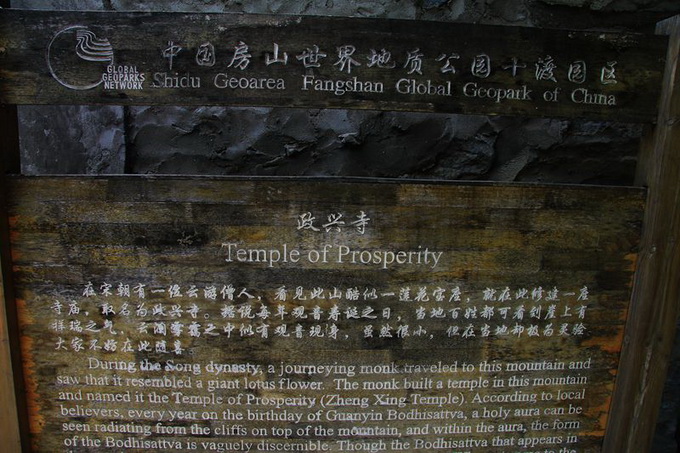 GLOBAL
GEOPARKS
NETWORK
中国房山世界地质公园十渡园区
Shidu Geoarea Fangshan Global Geopark of China
政兴寺
Temple of Prosperity
在宋朝有一位云游僧人，看见此山酷似一莲花宝座，就在此修建一座
寺庙，取名为政兴寺。据说每年观音寿诞之日，当地百姓都可看到崖上有
祥瑞之气，云涌雾霭之中似有观音现身，虽然很小，但在当地却极为灵验
大家不妨在此随喜。
During the Song dynasty, a journeying monk traveled to this mountain and
saw that it resembled a giant lotus flower. The monk built a temple in this mountain
and named it the Temple of Prosperity (Zheng Xing Temple). According to local
believers, every year on the birthday of Guanyin Bodhisattva, a holy aura can be
seen radiating from the cliffs on top of the mountain, and within the aura, the form
of the Bodhisattva is vaguely discernible. Though the Bodhisattva that appears in